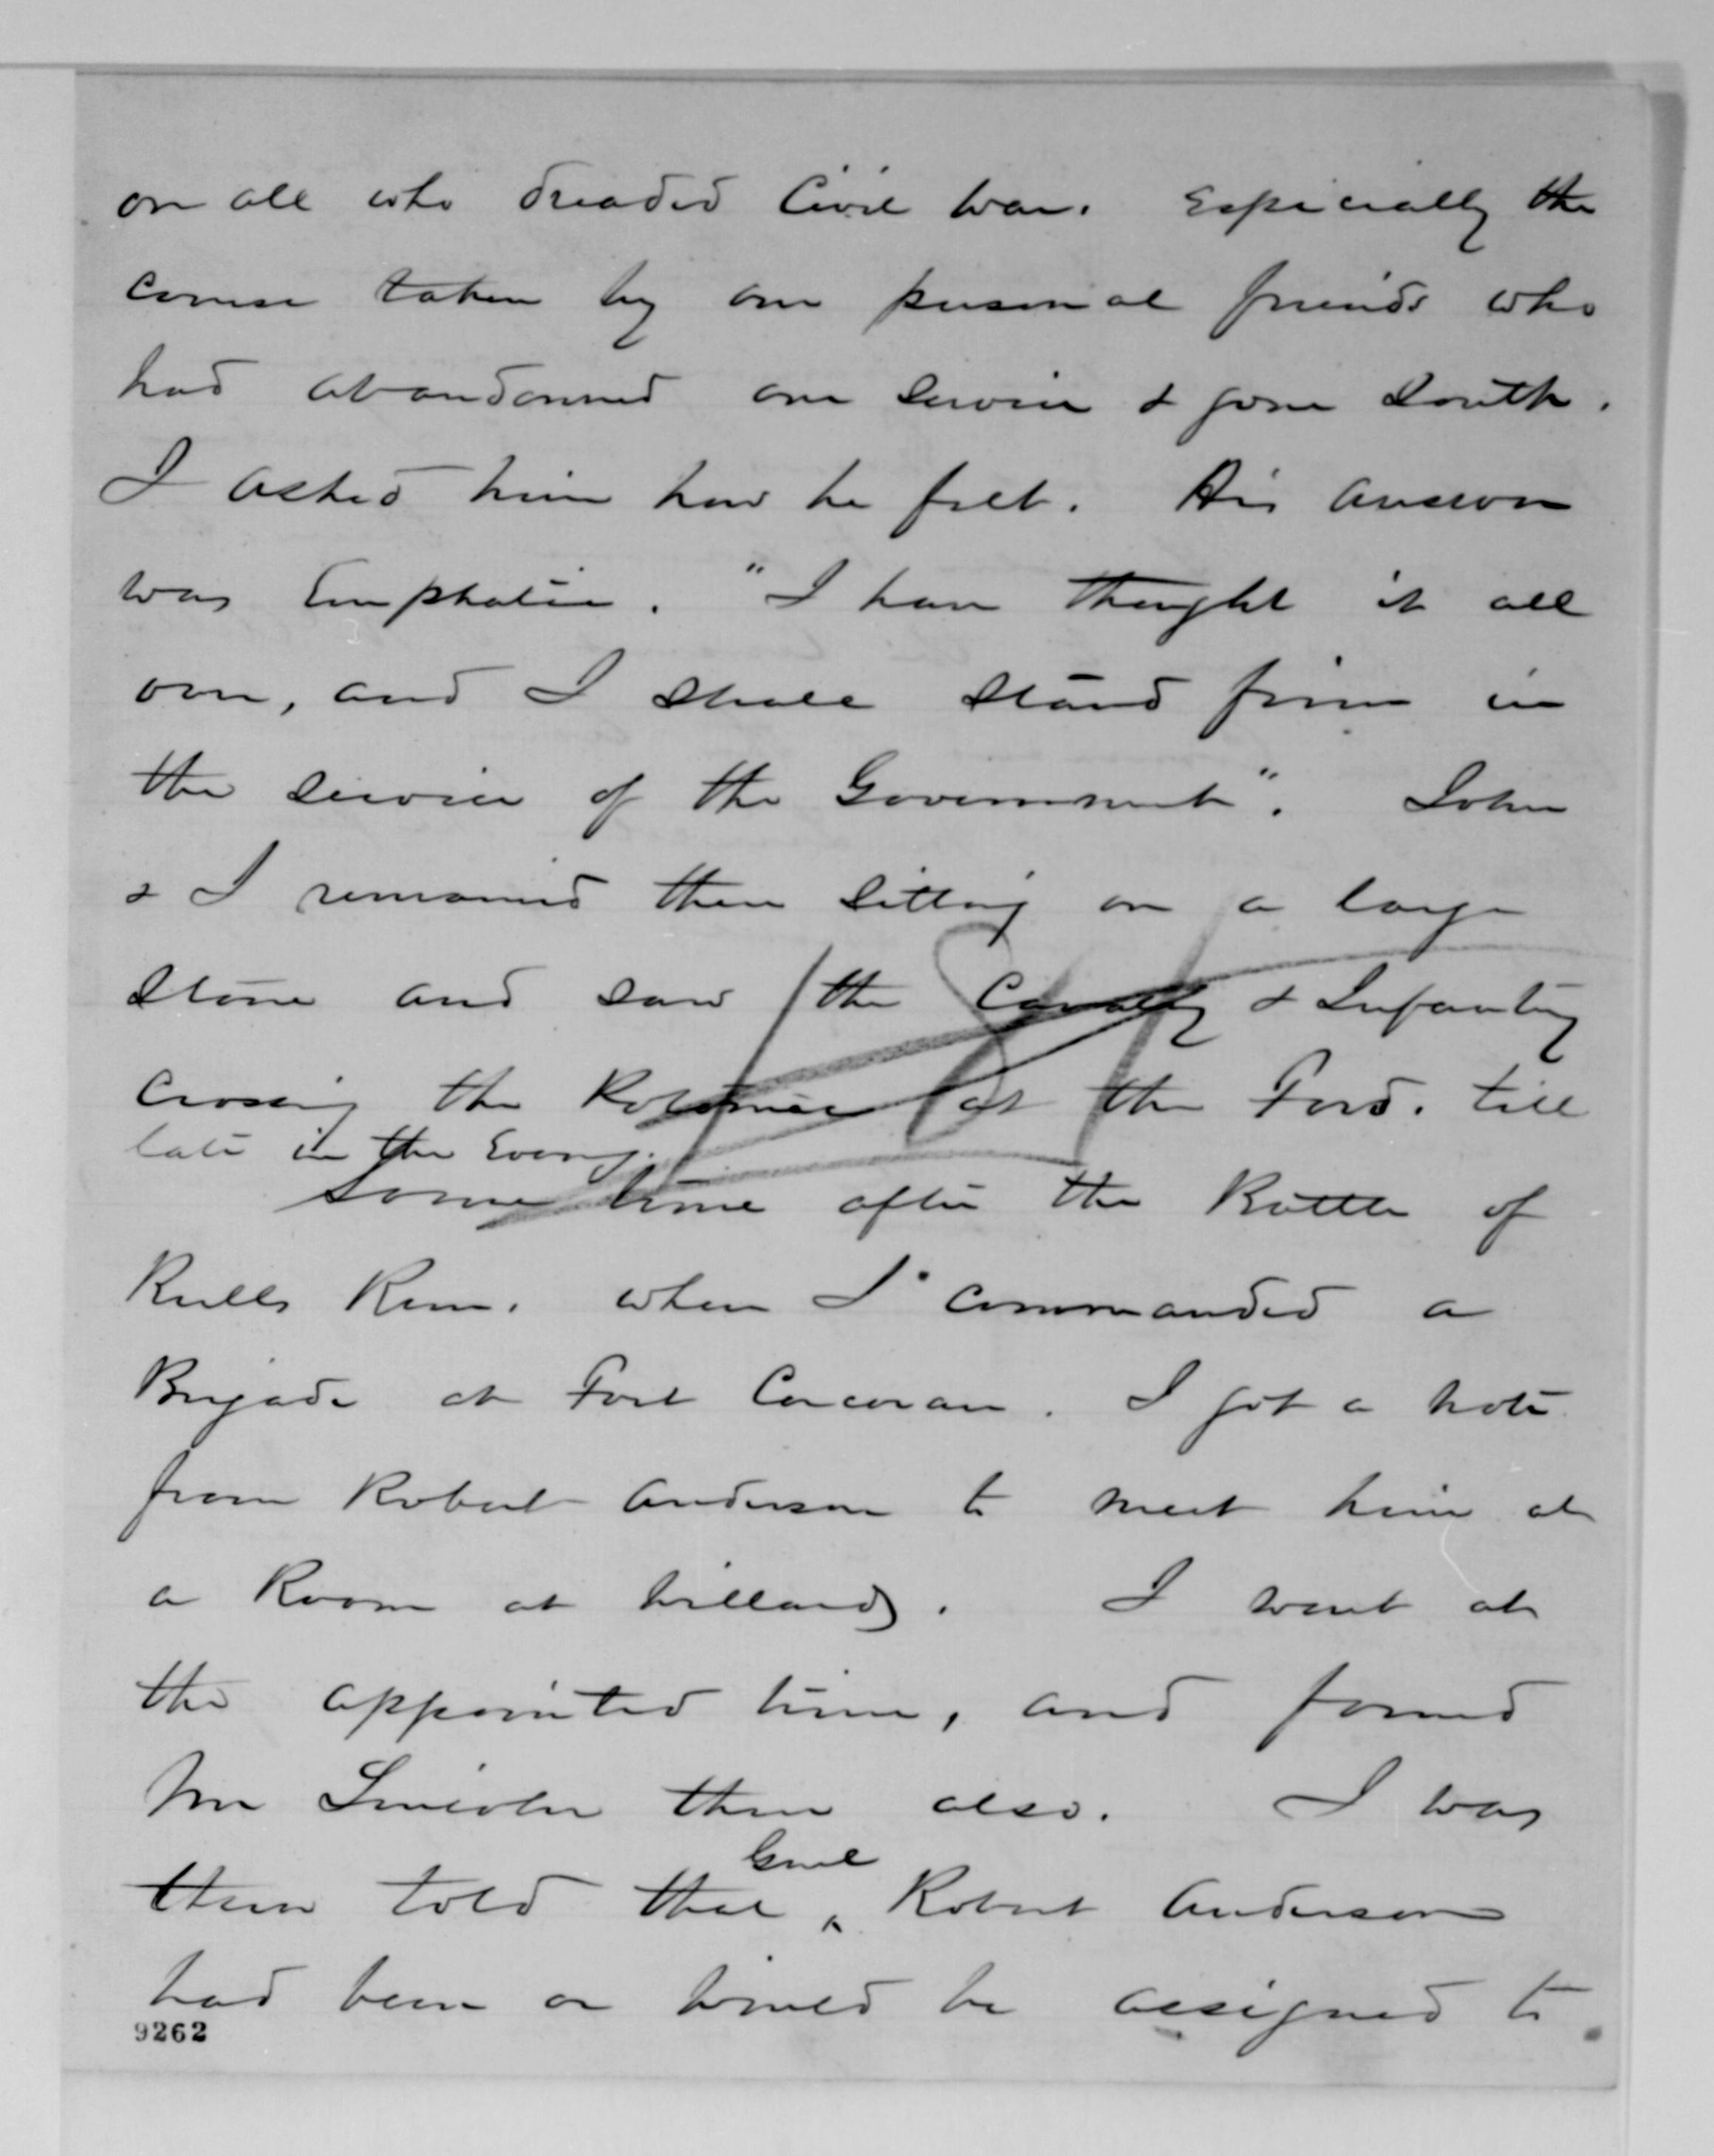 on all who dreaded Civil War. Especially the
course taken by our personal friends who
had abandoned our service & gone South.
I asked him how he felt. His answer
was Emphatic. "I have thought it all
over, and I shall stand firm in
the service of the Government". John
& I remained there sitting on a large
stone and saw the Cavalry & Infantry
crossing the Potomac at the Ford. till
late in the Evening.
Some time after the Battle of
Bulls Run. when I commanded a
Brigade at Fort Corcoran. I got a note
from Robert Anderson to meet him at
a Room at Willards. I went at
the appointed time, and found
Mr Lincoln there also. I was
Genl
then told that ^ Robert Anderson
had been or would be assigned to
9262